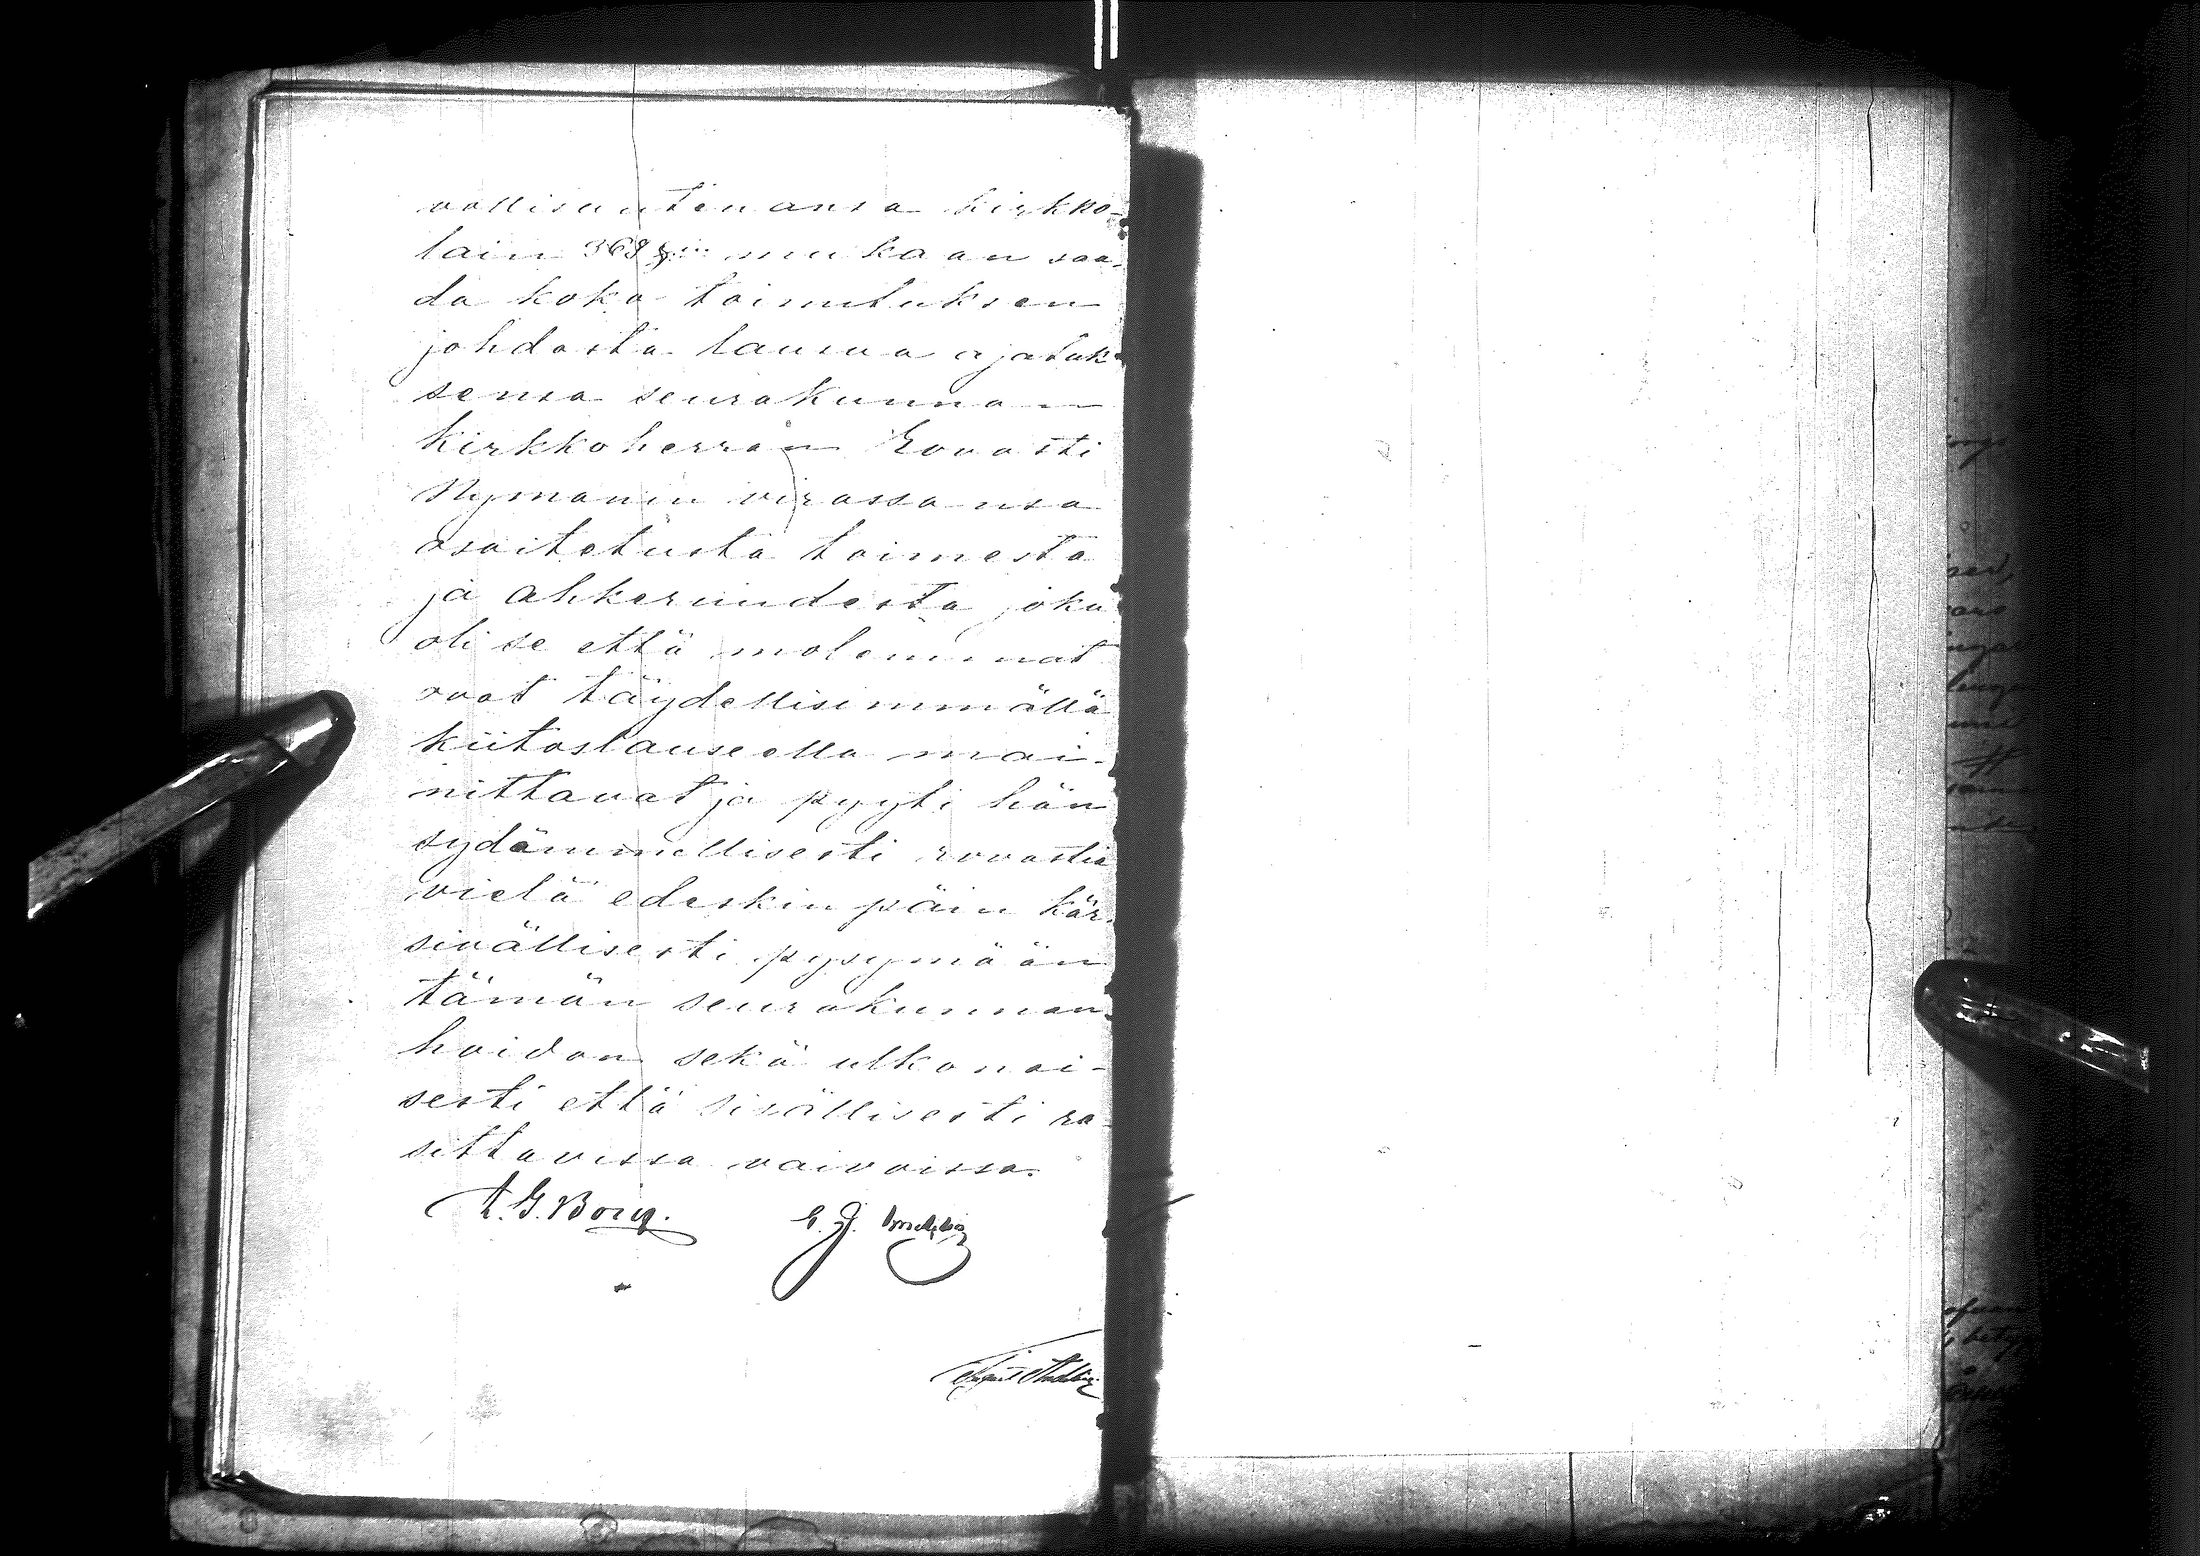 vollisuutenansa kirkko-
lain 368 §:in mukaan saa-
da koko toimituksen
johdosta lausua ajatuk-
sensa seurakunnan
kirkkoherran Rovasti
Nymanin virassansa
osoitetusta toimesta
ja ahkeruudesta, joka
oli se että molemmat
ovat täydellisimmällä
kiitoslauseella mai-
nittavat ja pyyti hän
sydämmellisesti rovastia
vielä edeskin päin kär-
sivällisesti pysymään
tämän seurakunnan
hoidon sekä ulkonai-
sesti että sisällisesti ra-
sittavissa vaivoissa.
A. G. Borg. C. J.